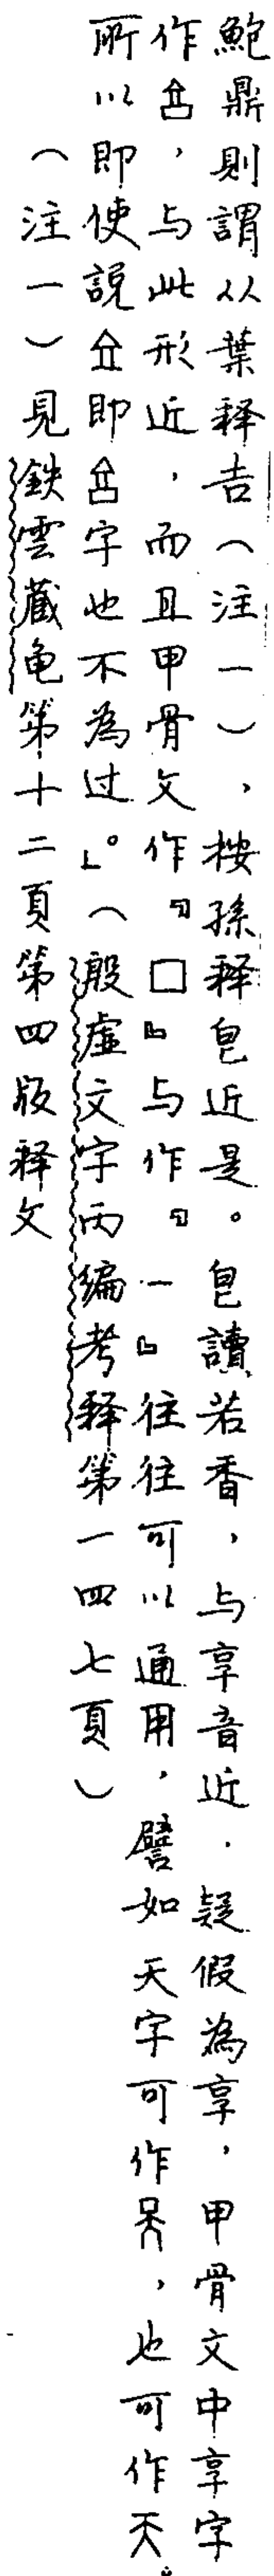 鮑鼎則謂从葉释吉（注一），按孫释皀近是。皀讀若香，与享音近．疑假為享，甲骨文中享字
作，与此形近，而且甲骨文作『口』与作『一』往往可以通用，譬如天字可作，也可作天
所以即使説即字也不為过』。（殷虚文字丙编考释第一四七頁）
（注一）見鉄雲藏龟第十二頁第四版释文